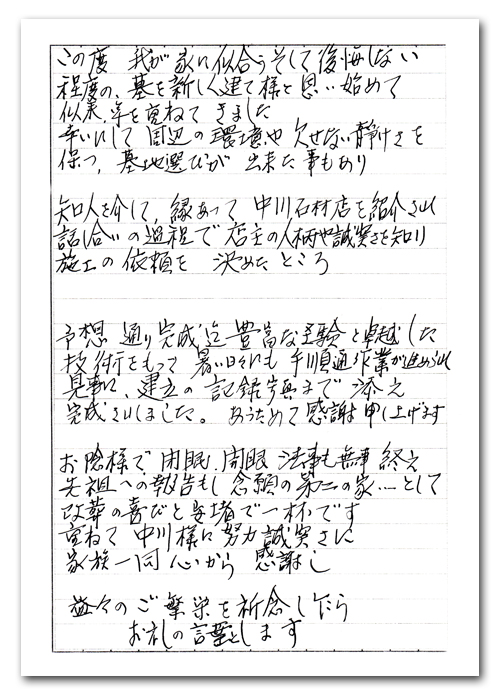 この度 我が家に似合うそして後悔しない
程度の、墓を新しく建て様と思い始めて
似来、年を重ねて きました
幸いにして 周辺の環境や 欠せない静けさを
保つ、墓地選びが 出来た事もあり
知人を介して、縁あって 中川石材店を紹介され
話し合いの過程で 店主の人柄や誠実さを知り
施工の依頼を 決めたところ
予想通り完成迄 豊富な経験と卓越した
技術をもって 暑い日々にも 手順通り作業が進められ
見事に、建立の 記録写真まで 添え
完成されました。 あらためて 感謝申し上げます
お陰様で 閉眼、開眼 法事も無事 終え
先祖への報告もし 念願の第二の家…として
改葬の喜びと安堵で一杯です
重ねて 中川様に 努力誠実さに
家族一同 心から 感謝し
益々の ご繁栄を祈念しながら
お礼の言葉とします